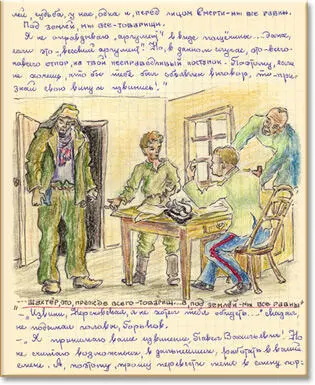 лей, судьба у нас, одна и, перед лицом смерти-мы все равны.
Под землей, мы все-товарищи.
Я не оправдываю „аргумент" в виде пощёчине... даже,
если это-„веский аргумент". Но, в данном случае, это-
кавого отпор, на твой несправедливый поступок. Поэтому, если
не хочешь, чтобы тебе был объявлен выговор, то-при-
знай свою вину и извинись!"
"Шахтёр, это, прежде всего-товарищ... а под землей-мы все равны"
-„Извини, Керсновская, я не хотел тебя обидеть..."-сказал,
не подымая головы, Горьков.
-„Я принимаю ваше извинение, Павел Васильевич! Но
не считаю возможным, в дальнейшем, работать в вашей
смене. А, поэтому, прошу перевести меня в смену гор-